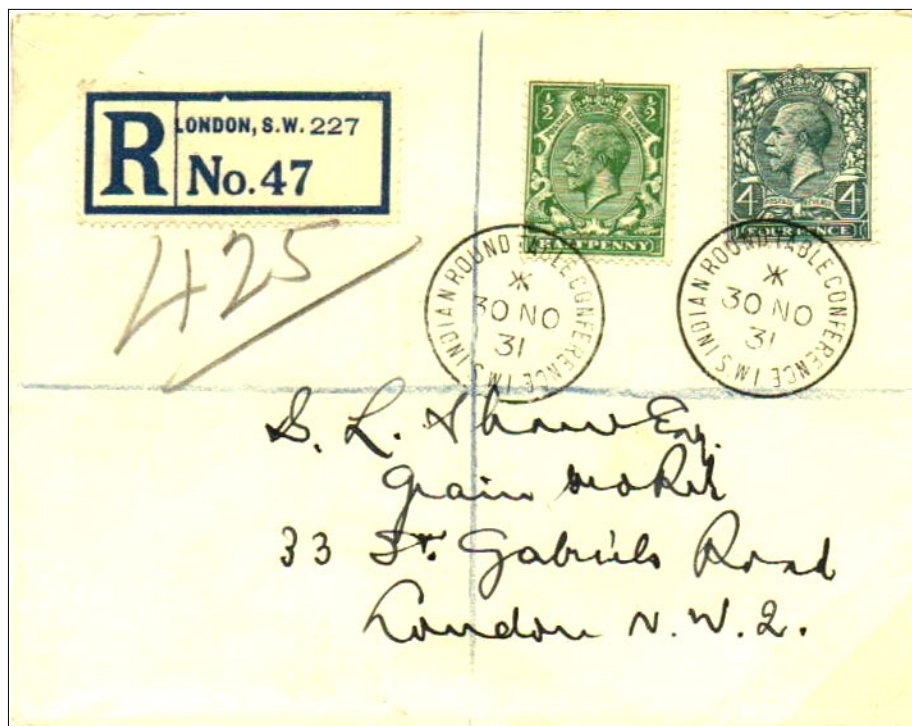 R LONDON, S.W. 227
No. 47
425
½ ½
POSTAGE REVENUE
HALFPENNY
4 POSTAGE REVENUE 4
FOUR PENCE
INDIAN ROUND TABLE CONFERENCE I.M.S
30 NO
31
INDIAN ROUND TABLE CONFERENCE I.M.S
30 NO
31
S. L. Shaw Esq.
Grain
33 St. Gabriels Road
London N.W.2.